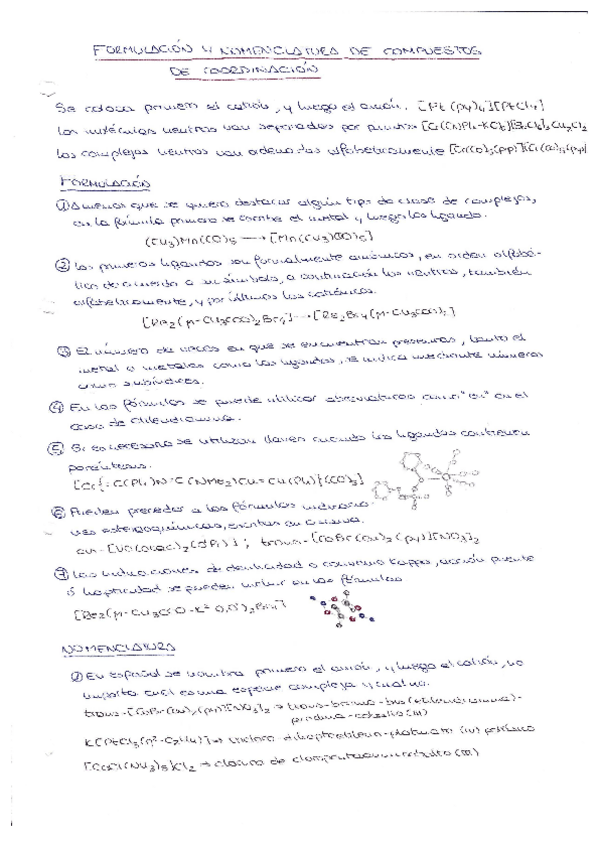 FORMULACIÓN Y NOMENCLATURA DE COMPUESTOS
DE COORDINACIÓN
Se coloca primero el catión, y luego el anión. [Pt(py)4][PtCl4]
Las moléculas neutras van separadas por puntos
Los complejos neutros van ordenados alfabéticamente
FORMULACIÓN
① A menos que se quiera destacar algún tipo de clase de complejos,
en la fórmula primero se escribe el metal y luego los ligandos.
(CH3)Mn(CO)5 → [Mn(CH3)(CO)5]
② Los primeros ligandos son formalmente aniónicos, en orden alfabé-
tico de acuerdo a su símbolo, a continuación los neutros, también
alfabéticamente, y por últimos los catiónicos.
③ El número de veces en que se encuentran presentes, tanto el
metal o metales como los ligandos, se indica mediante números
como subíndices.
④ En las fórmulas se puede utilizar abreviaturas como "en" en el
caso de etilendiamina.
⑤ Si es necesario se utilizan llaves cuando los ligandos contienen
paréntesis.
⑥ Pueden preceder a las fórmulas
estereoquímicos, escritos en cursiva.
trans-[CoBr(en)2(py)][NO3]2
⑦ Las indicaciones de denticidad o convenio kappa, acción puente
ó hapticidad se pueden incluir en las fórmulas
NOMENCLATURA
① En español se nombra primero el anión, y luego el catión, no
importa cual es una especie compleja y cual no.
trans-[CoBr(en)2(py)][NO3]2 → trans-bromo-bis(etilendiamina)-
piridina-cobalto(III)
K[PtCl3(η2-C2H4)] → tricloro platinato (II) potásico
[CoCl(NH3)5]Cl2 → cloruro de cloropentaamminocobalto (III)